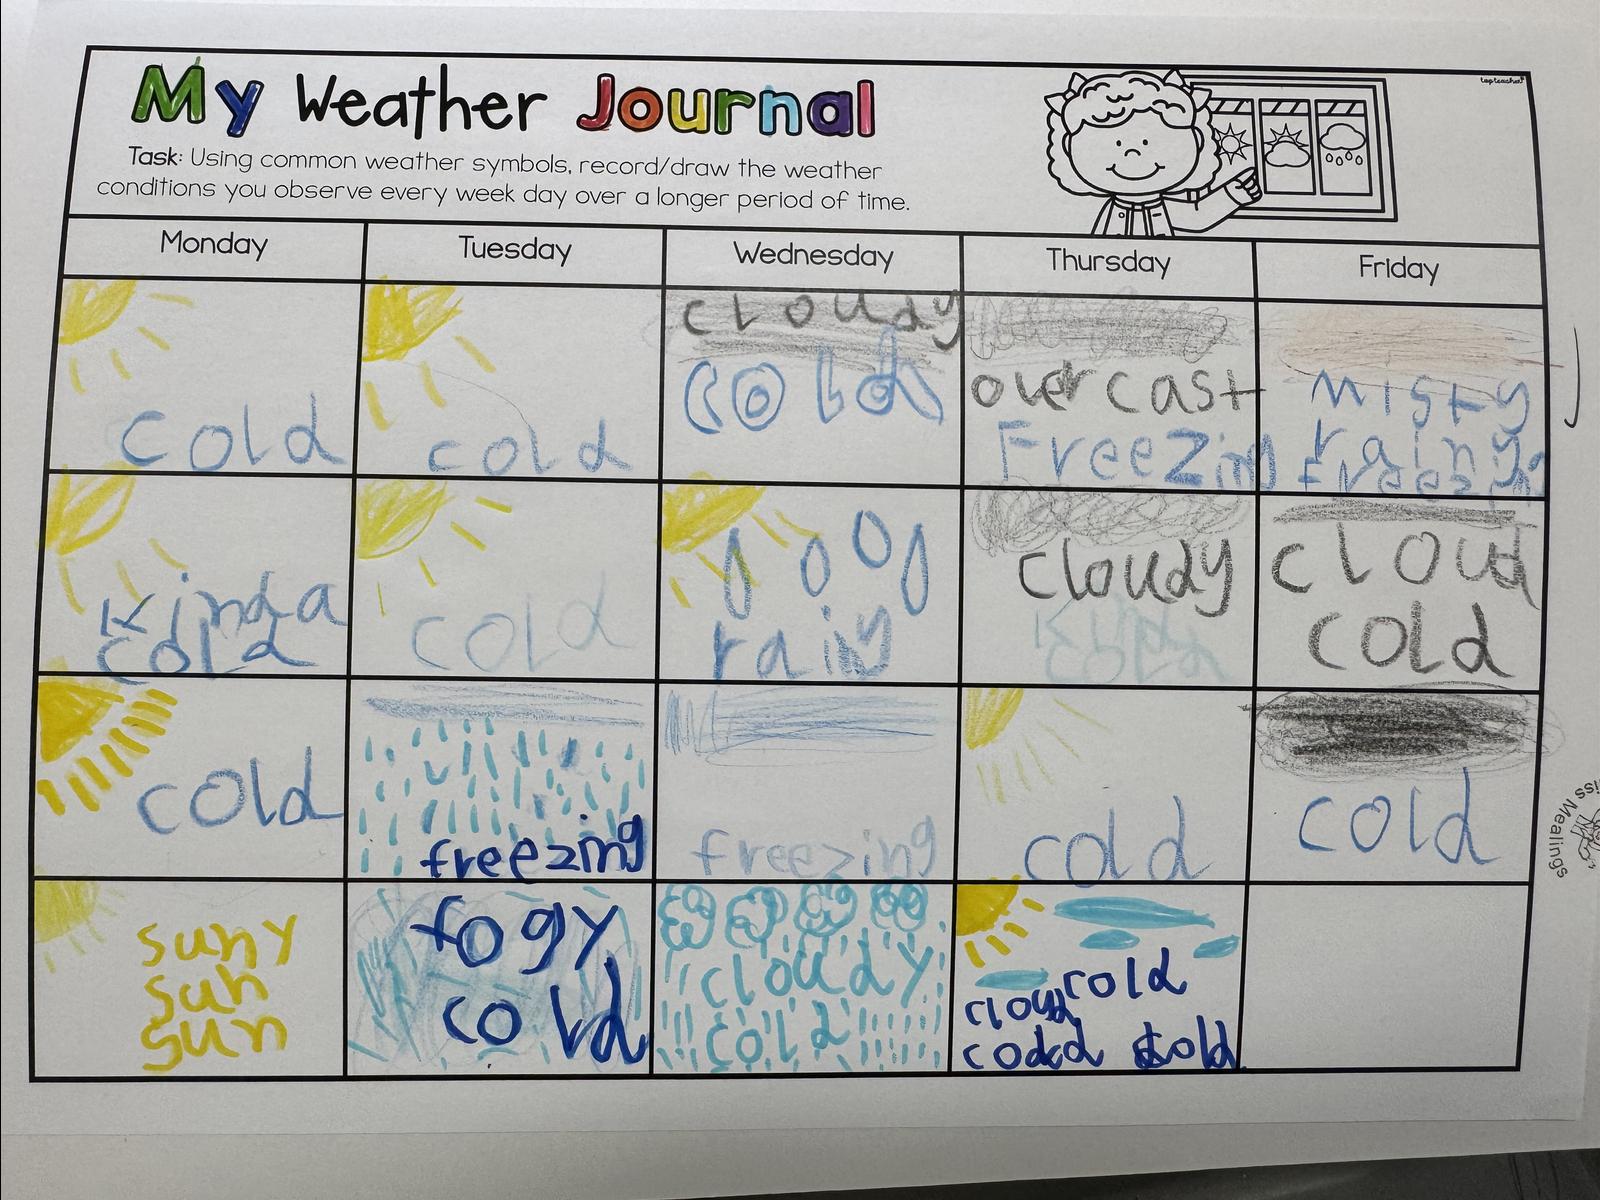 topteacher
My Weather Journal
Task: Using common weather symbols, record/draw the weather
conditions you observe every week day over a longer period of time.
Monday
Tuesday
Wednesday
Thursday
Friday
cold
cold
cloudy
cold
overcast
Freezing
misty
rainy
freezing
kinda
cold
cold
rain
cloudy
kinda
cold
cloud
cold
cold
freezing
freezing
cold
cold
suny
sun
sun
fogy
cold
cloudy
cold
cold
cloud
cold
Miss Mealings